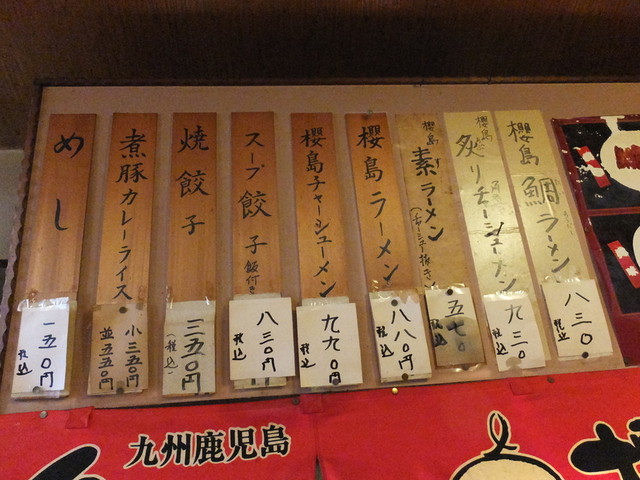 櫻島鯛ラーメン
八三〇
税込
櫻島
炙りチャーシューメン
九三〇
税込
櫻島素ラーメン
(チャーシュー抜き)
五七〇
税込
櫻島ラーメン
八八〇円
税込
櫻島チャーシューメン
九九〇円
税込
スープ餃子飯付き
八三〇円
税込
焼餃子
三五〇円
(税込)
煮豚カレーライス
小三五〇円
並五五〇円
めし
一五〇円
税込
九州鹿児島